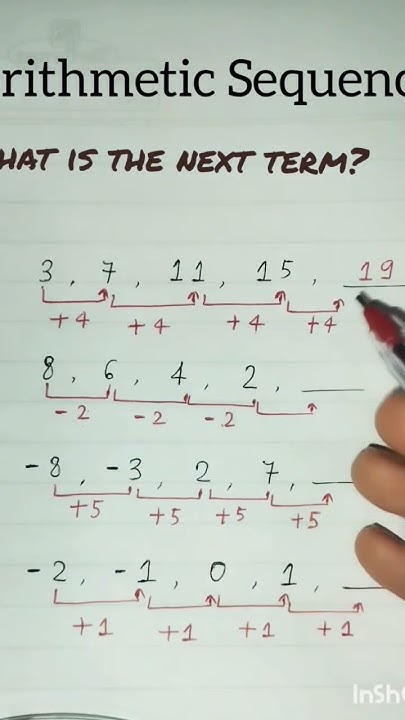 rithmetic Sequenc
HAT IS THE NEXT TERM?
3, 7, 11, 15, 19
+4 +4 +4 +4
8, 6, 4, 2, ____
-2 -2 -2
-8, -3, 2, 7, ____
+5 +5 +5 +5
-2, -1, 0, 1, ____
+1 +1 +1 +1
InSh